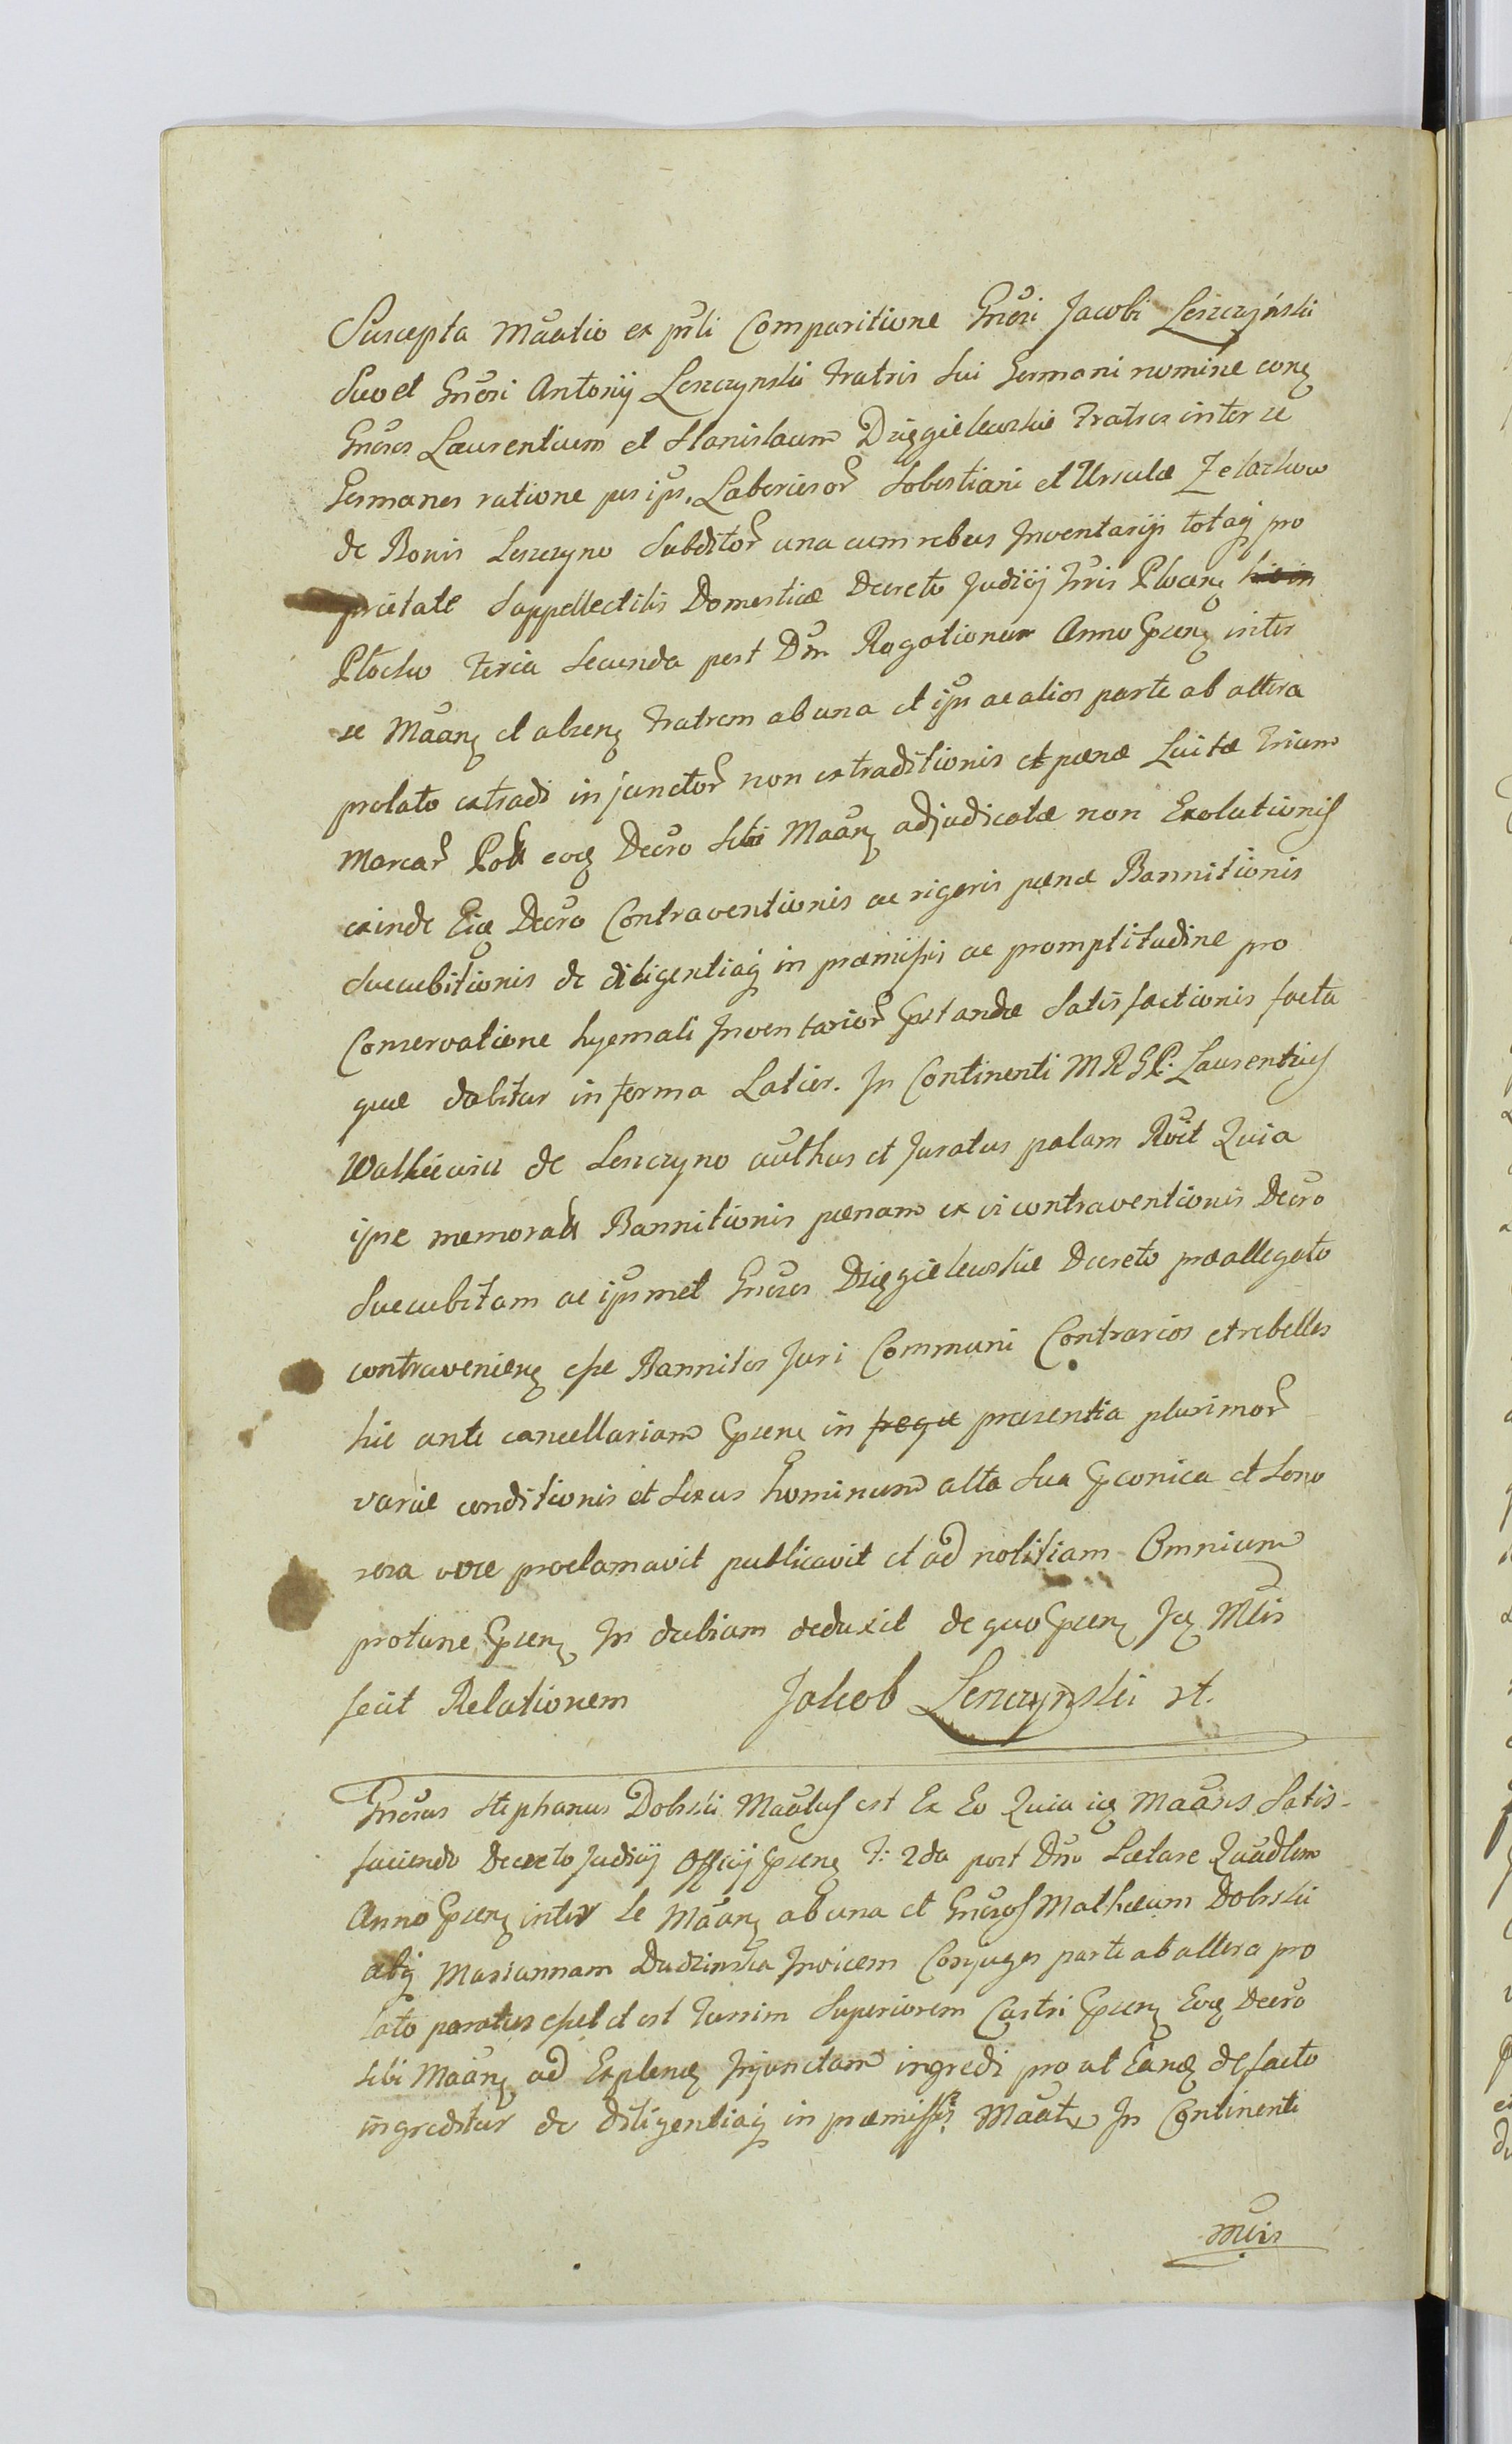 Suscepta Maãtio ex pñli Comparitione Gnõsi Jacobi Leszczyński
Suo et Gnõsi Antonij Leszczynski Fratris Sui Germani nomine conq̃
Gnõsos Laurentium et Stanislaum Dzięgielewskie Fratres inter se
Germanos ratione per ip̃s. Laboriosor̃ Sobestiani et Ursulæ
de Bonis Leszczyno Subditor̃ una cum rebus Inventarijs totaq̃ pro
prietate Suppellectilis Domesticæ Decreto Judicij Tr̃ris Plocen̄ hic in
Plocko Feria Secunda post Dñm Rogationum Anno Pr̃sen̄ inter
se Maãn̄ et absen̄ Fratrem ab una et ip̃s ac alios parte ab altera
prolato extradi injunctor̃ non extraditionis et pænæ Luitæ Trium
Marcar̃ Poll eoq̃ Decr̃o Sibi Maãn̄ adjudicatæ non Exolutionis
exinde Eiq̃ Decr̃o Contraventionis ac rigoris pænæ Bannitionis
Succubitionis de diligentiaq̃ in præmissis ac promptitudine pro
Conservatione hyemali Inventarior̃ Pr̃standæ Satisfactionis facta
quæ dabitur in forma Latior. In Continenti M R G R. Laurentius
de Leszczyno aũthus et Juratus palam Rõit Quia
ipse memorat Bannitionis pænam ex vi contraventionis Decr̃o
Succubitam ac ip̃smet Gnõsos Dzięgielewskie Decreto præallegato
contravenien̄ esse Bannitos Juri Communi Contrarios et rebelles
hic ante cancellariam Pr̃sen̄ in præsentia plurimor̃
variæ conditionis et Sexus hominum alta Sua Pr̃conica et Sono
rosa voce proclamavit publicavit et ad notitiam Omnium
protunc Pr̃sen̄ In dubiam deduxit de quo Pr̃sen̄ Jq̃ Mtis
fecit Relationem Jakob Leszczynski
Gnõsus Stephanus Dobski Maãtus est Ex Eo Quia iq̃ Maãns Satis-
faciendo Decreto Judicij Officij Pr̃sen̄ F: 2da post Dñm Lætare Quadlem
Anno Pr̃sen̄ inter Se Maãn̄ ab una et Gnõsos Mathæum Dobski
atq̃ Mariannam Dudzinska Invicem Conjuges parte ab altera pro
lato paratus esset et est Turrim Superiorem Castri Pr̃sen̄ Eoq̃ Decr̃o
Sibi Maãn̄ ad Explend̄ Injunctam ingredi pro ut Eand̄ de facto
ingreditur de diligentiaq̃ in præmissis Maãt In Continenti